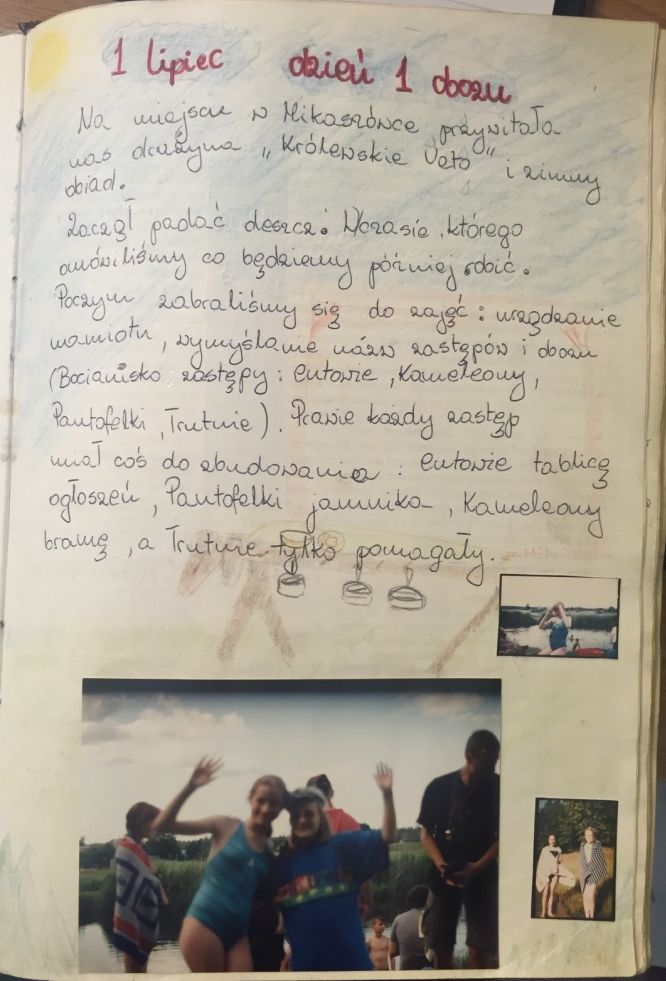 1 lipiec dzień 1 obozu
Na miejscu w Mikaszówce przywitała
nas drużyna „Królewskie Veto" i zimny
obiad.
Zaczął padać deszcz. Wczasie, którego
omówiliśmy co będziemy później robić.
Poczym zabraliśmy się do zajęć: urządzanie
namiotu, wymyślanie nazw zastępów i obozu
(Bocianisko zastępy: entowie, Kameleony,
Pantofelki, Trutnie). Prawie każdy zastęp
miał coś do zbudowania: entowie tablicę
ogłoszeń, Pantofelki jamnika, Kameleony
bramę, a Trutnie tylko pomagały.